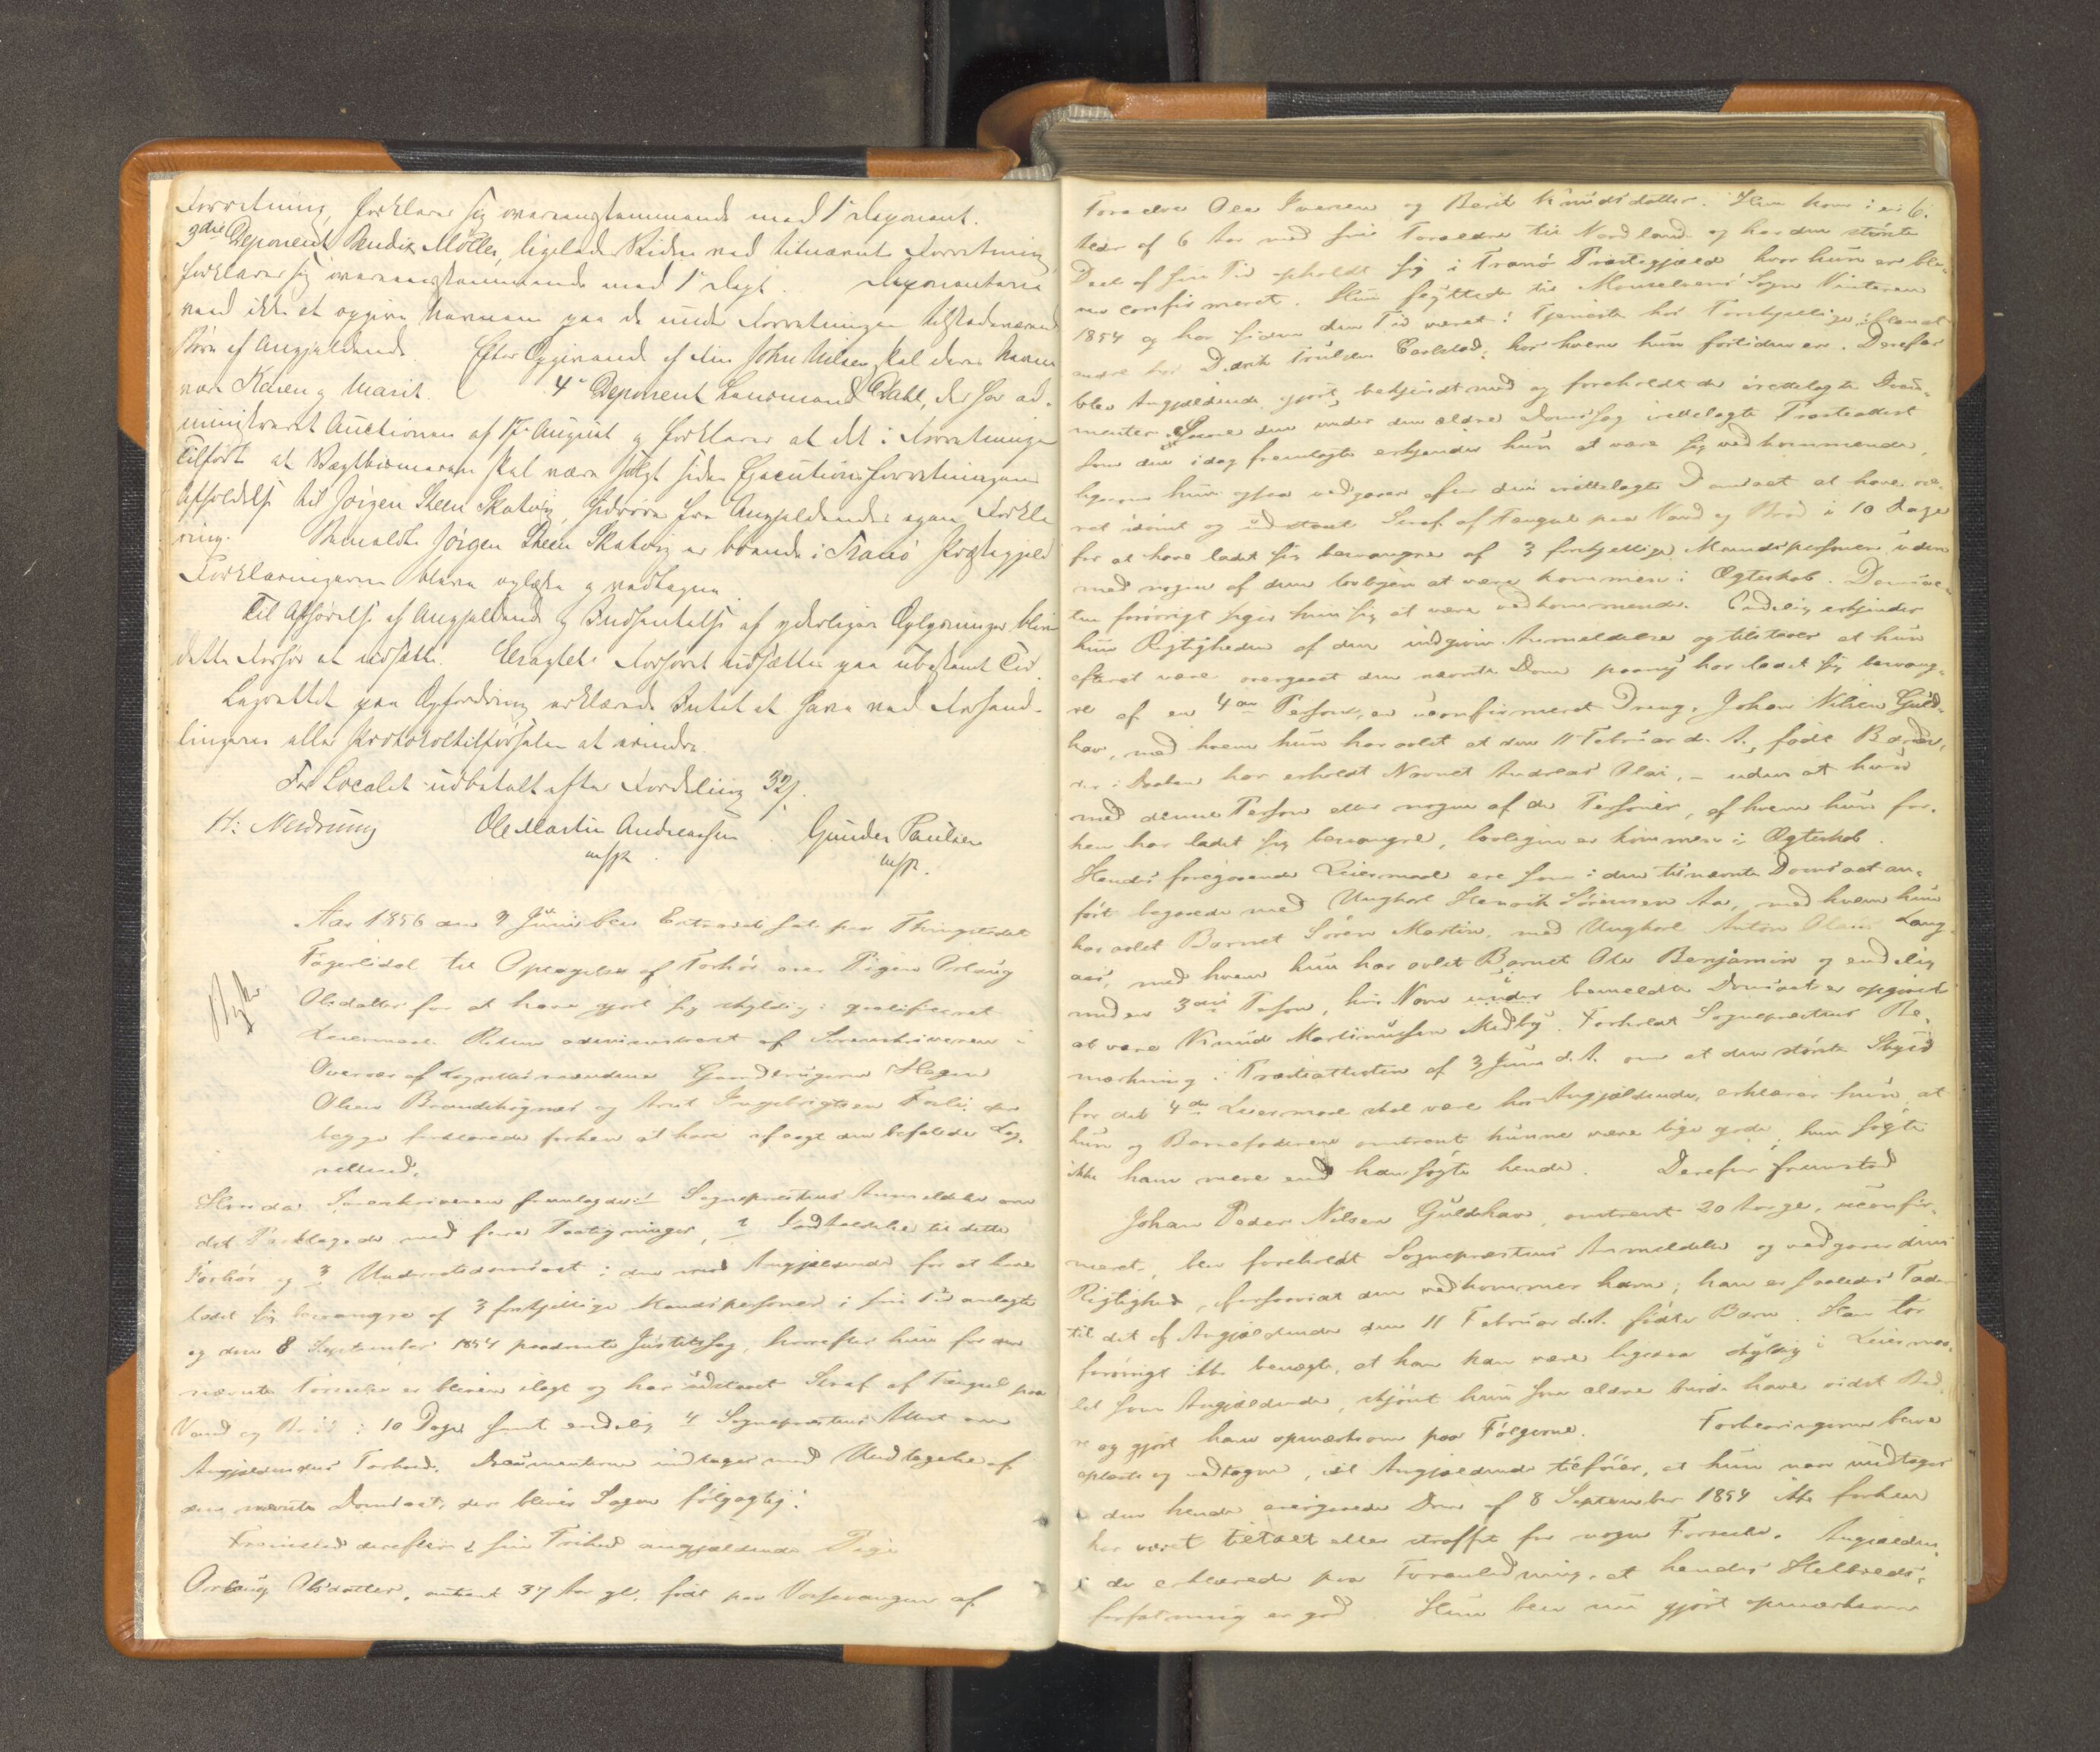 Forretning, forklarer sig overensstemmende med 1e Deponent.
3die Deponent Bendix Möller, ligeledes Vidne ved bemeldte Forretning
forklarer sig overensstemmende med 1e Dept. Deponenterne
veed ikke at opgive Navnene paa de under Forretningen tilstedeværende
Børn af Angjeldende. Efter Opgivende af John Nilsen skal deres Navne
være Karen og Marit. 4e Deponent Lensmand Dahl, der har ad-
ministreret Auctionen af 17de August og forklarer at det i Forretningen
Tilførte at skal være solgt siden Executionsforretningens
Afholdelse til Jörgen Steen Skatvig, hidrører fra Angjeldendes egen Forkla
ring. Bemeldte Jörgen Steen Skatvig er boende i Tranö Præstegjeld
Forklaringerne bleve oplæste og vedtagne.
Til Afhørelse af Angjeldende og Indhentelse af yderligere Oplysninger bliver
dette Forhør at udsætte. Eragtet: Forhøret udsættes paa ubestemt Tid.
Lagrettet paa Opfordring erklærede Intet at have ved Forhand-
lingerne eller Protokoltilførselen at erindre.
For Localet udbetalt efter Fordeling 32 /.
H: Meidning Ole Martin Andreassen Gunder Paulsen
mfp. mfp.
Aar 1856 den 9 Juni blev Extraret sat paa Thingstedet
Fagerlidal til Optagelse af Forhör over Pigen Orlaug
Olsdatter for at have gjort sig skyldig i qvalificeret
Leiermaal. Retten administreret af Sorenskriveren i
Overvær af Lagrettesmændene Gaardbrugerne Hagen
Olsen Brandskognes og Arnt Ingebrigtsen Fosli, der
begge forklarede forhen at have aflagt den befalede Lag-
retteeed.
Hvorda Sorenskriveren fremlagde: 1 Sognepræstens Anmeldelse om
det Paaklagede med flere Paategninger, 2 til dette
Forhör og 3 Underretsdomsact i den mod Angjældende for at have
ladet sig besvangre af 3 forskjellige Mandspersoner i sin Tid anlagte
og den 8 September 1854 paadömte Justitssag, hvorefter hun for den
nævnte Forseelse er bleven ilagt og har udstaaet Straf af Fængsel paa
Vand og Bröd i 10 Dage samt endelig 4 Sognepræstens Attest om
Angjældendes Forhold. Documenterne indtages med Undtagelse af
den nævnte Domsact, der bliver Sagen fölgagtig.
Fremstod derefter i sin Frihed angjældende Pige
Orlaug Olsdatter, omtrent 37 Aar gl., född paa Vossevangen af
Forældre Ole Iversen og Berit Knudsdatter. Hun kom i en
Alder af 6 Aar med sine Forældre til Nordland og har den störste
Deel af sin Tid opholdt sig i Tranö Præstegjæld hvor hun er ble-
ven confirmeret. Hun flyttede til Maalselvens Sogn Vinteren
1854 og har siden den Tid været i Tjeneste hos Forskjellige, iblandt
andre hos Carlstad, hos hvem hun fortiden er. Derefter
blev Angjældende gjort bekjendt med og foreholdt de irettelagte Docu-
menter. Saavel den under den ældre Domssag irettelagte Præsteattest
som den idag fremlagte erkjender hun at være sig vedkommende,
ligesom hun ogsaa vedgaaer efter den irettelagte Domsact at have væ-
ret idömt og udstaaet Straf af Fængsel paa Vand og Bröd i 10 Dage
for at have ladet sig besvangre af 3 forskjellige Mandspersoner uden
med nogen af dem lovligen at være kommen i Ægteskab. Domsac-
ten forövrigt siger hun sig at være vedkommende. Endelig erkjender
hun Rigtigheden af den indgivne Anmeldelse og tilstaaer at hun
efterat være overgaaet den nævnte Dom paany har ladet sig besvang-
re af en 4de Person, en uconfirmeret Dreng, Johan Nilsen Guld-
hav, med hvem hun har avlet et den 11 Februar d. A. födt Barn,
der i Daaben har erholdt Navnet Andreas Olai, – uden at hun
med denne Person eller nogen af de Personer, af hvem hun for-
hen har ladet sig besvangre, lovligen er kommen i Ægteskab.
Hendes foregaaende Leiermaal ere som i den tilnævnte Domsact an-
fört begaaede med Ungkarl Henrik Sörensen Aa, med hvem hun
har avlet Barnet Sören Martin, med Ungkarl Anton Olaus Lang-
aas, med hvem hun har avlet Barnet Ole Benjamin og endelig
med en 3die Person, hvis Navn under bemeldte Domsact er opgivet
at være Knud Martinussen Medby. Foreholdt Sognepræstens Be-
mærkning i Præsteattesten af 3 Juni d. A. om at den störste Skyld
for det 4de Leiermaal skal være hos Angjældende, erklærer hun, at
hun og Barnefaderen omtrent kunne være lige gode; hun sögte
ikke ham mere end han sögte hende. Derefter fremstod
Johan Peder Nilsen Guldhav, omtrent 20 Aar gl., uconfir-
meret, blev foreholdt Sognepræstens Anmeldelse og vedgaaer dens
Rigtighed, forsaavidt den vedkommer ham; han er saaledes Fader
til det af Angjældende den 11 Februar d. A. födte Barn. Han tör
forövrigt ikke benægte, at han kan være ligesaa skyldig i Leiermaa-
let som Angjældende, skjönt hun som ældre burde have vidst Bed-
re og gjort ham opmærksom paa Fölgerne. Forklaringerne bleve
oplæste og vedtagne, idet Angjældende tilföier, at hun naar undtages
den hende overgaaede Dom af 8 September 1854 ikke forhen
har været tiltalt eller straffet for nogen Forseelse. Angjælden-
de erklærede paa Foranledning, at hendes Helbreds-
forfatning er god. Hun blev nu gjort opmærksom